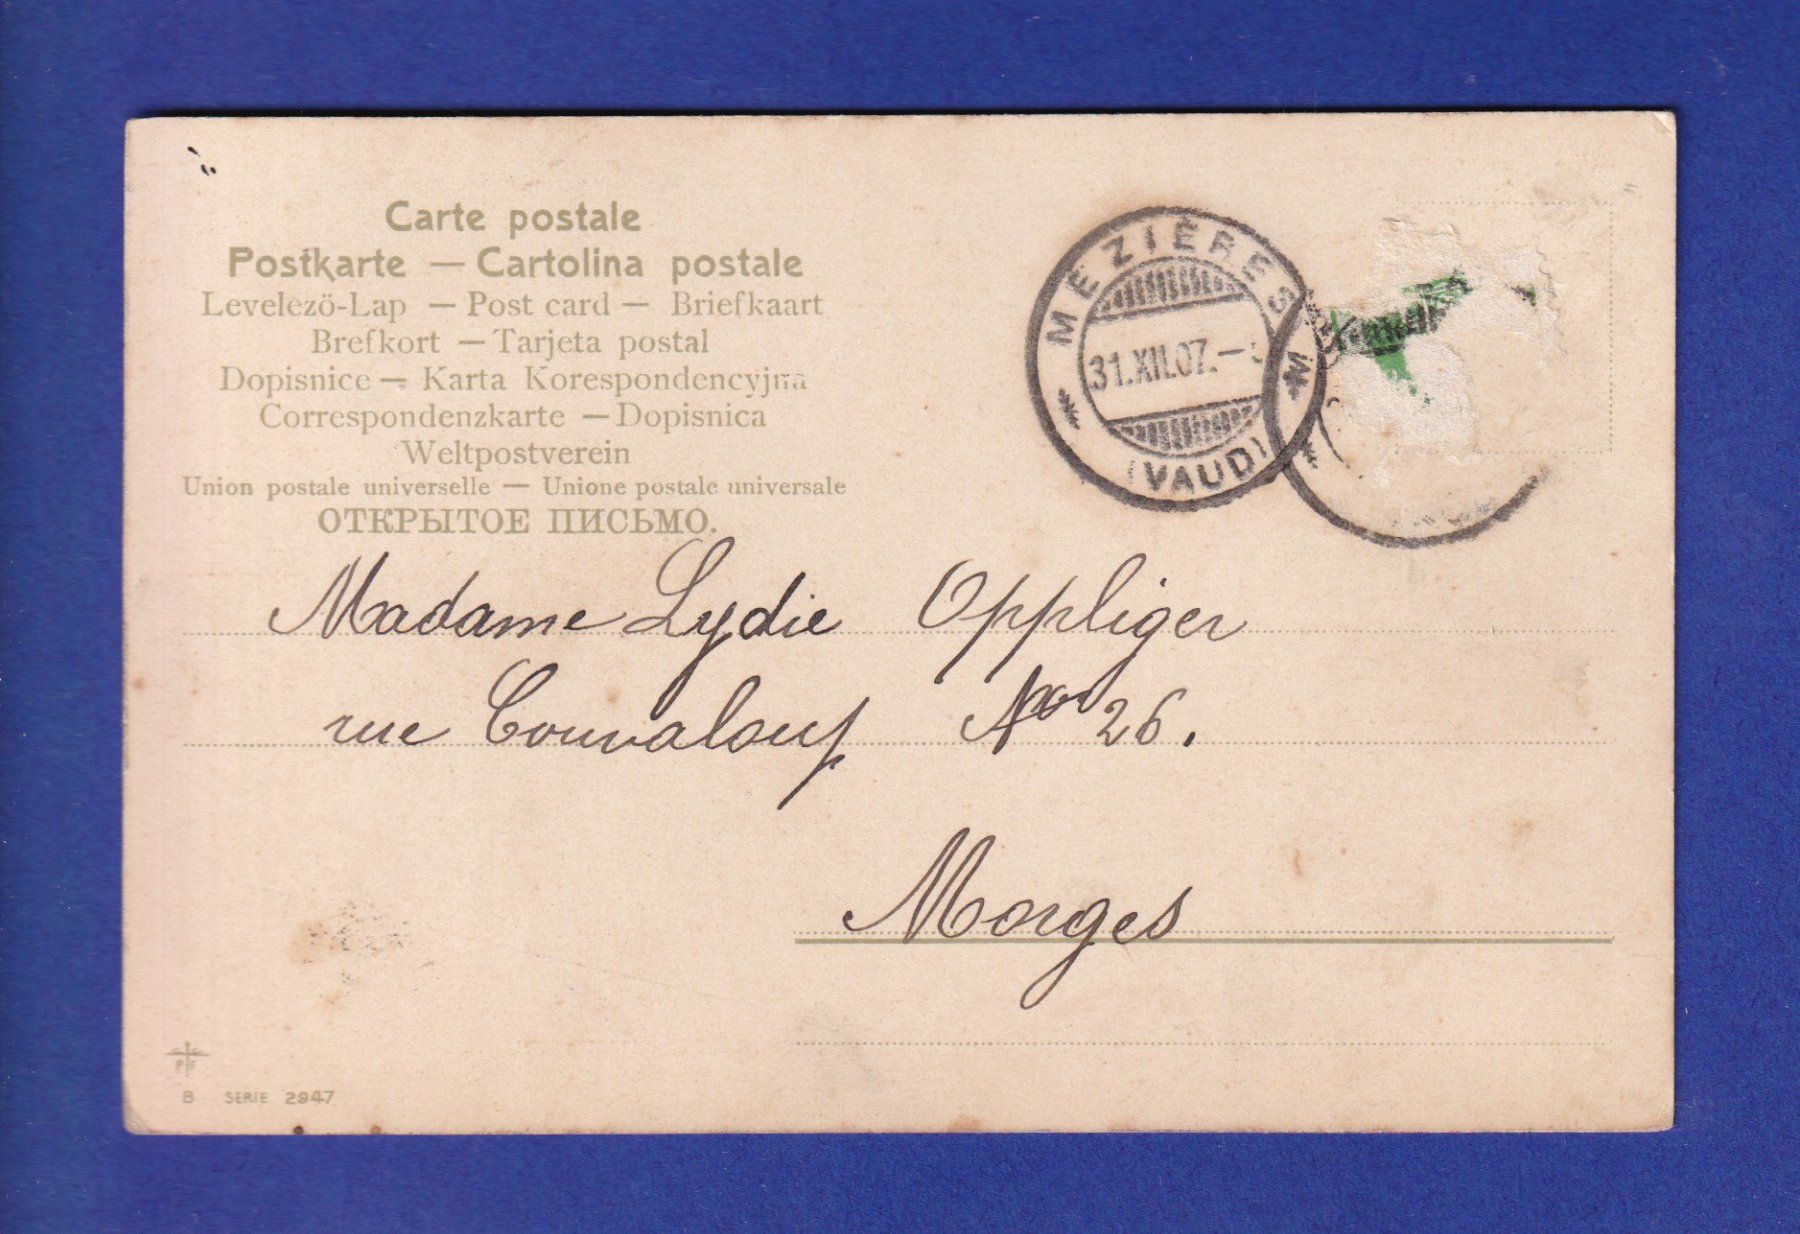 Carte postale
Postkarte — Cartolina postale
Levelezö-Lap — Post card — Briefkaart
Brefkort — Tarjeta postal
Dopisnice — Karta Korespondencyjna
Correspondenzkarte — Dopisnica
Weltpostverein
Union postale universelle — Unione postale universale
ОТКРЫТОЕ ПИСЬМО.
MEZIÈRES
31.XII.07.—
(VAUD)
M
Madame Lydie Oppliger
rue Couvaloup No 26.
Morges
PF
B SERIE 2947